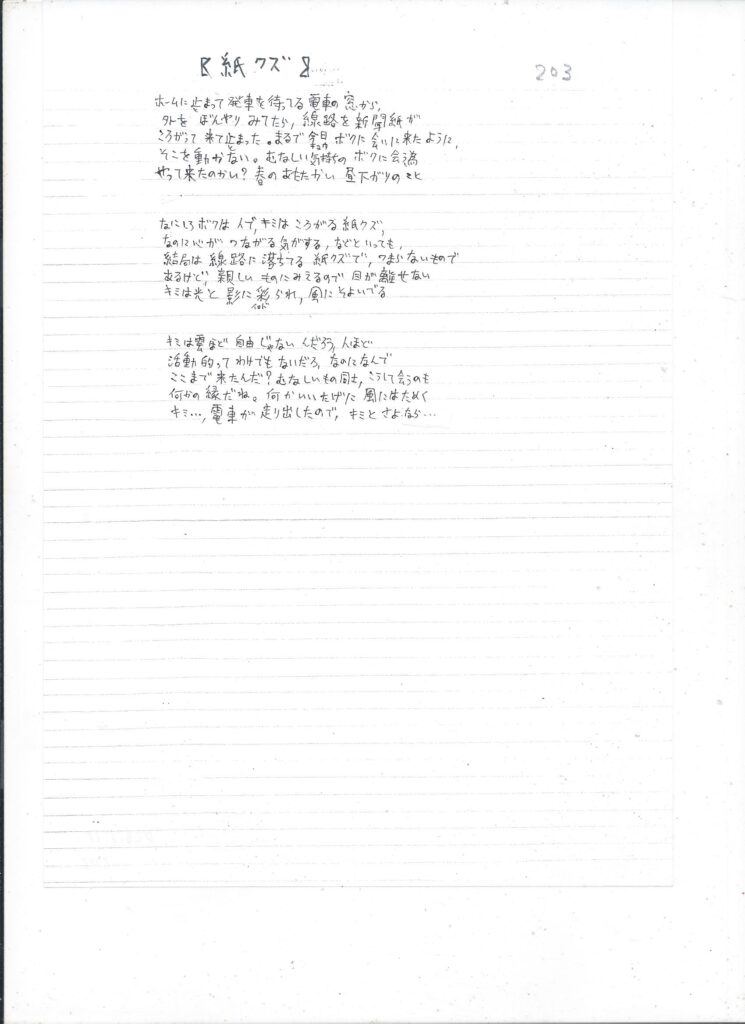 【紙クズ】
203
ホームに止まって発車を待ってる電車の窓から,
外をぼんやりみてたら,線路を新聞紙が
ころがって来て止まった。まるで今日ボクに会いに来たように,
そこを動かない。むなしい気持ちのボクに会う為
やって来たのかい?春のあたたかい昼下がりのこと
なにしろボクは人で,キミはころがる紙クズ,
なのに心がつながる気がする,などといっても,
結局は線路に落ちてる紙クズで,つまらないもので
あるけど,親しいものにみえるので目が離せない
キミは光と影に彩られ,風にそよいでる
キミは雲ほど自由じゃないんだろう,人ほど
活動的ってわけでもないだろ,なのになんで
ここまで来たんだ?むなしいもの同士,こうして会うのも
何かの縁だね。何かいいたげに風にはためく
キミ…,電車が走り出したので,キミとさよなら…